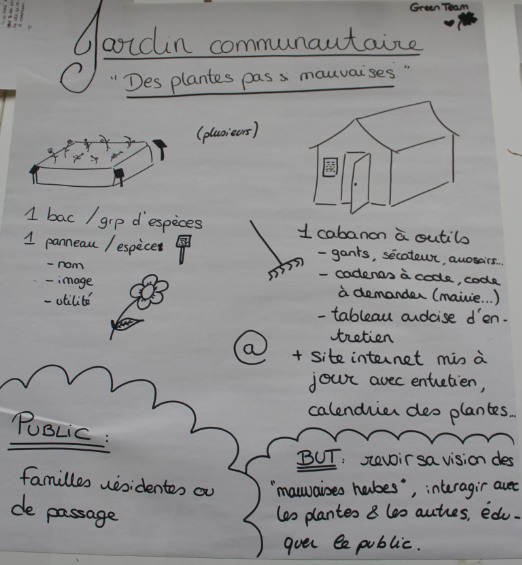 Green Team
Jardin communautaire
"Des plantes pas si mauvaises"
(plusieurs)
1 bac / grp d'espèces
1 panneau / espèces
- nom
- image
- utilité
1 cabanon à outils
- gants, sécateur, arrosoirs...
- cadenas à code, code
à demander (mairie...)
- tableau ardoise d'en-
tretien
@
+ site internet mis à
jour avec entretien,
calendrier des plantes...
PUBLIC :
familles résidentes ou
de passage
BUT : revoir sa vision des
"mauvaises herbes", interagir avec
les plantes & les autres, édu-
quer le public.